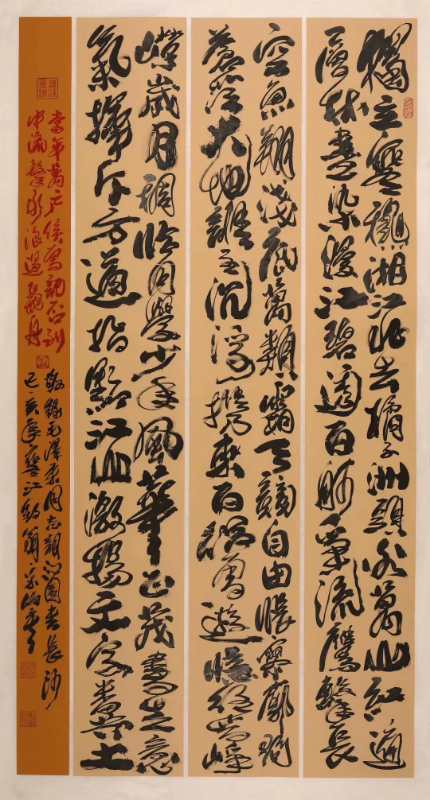 獨立寒秋湘江北去橘子洲頭看萬山紅遍
層林盡染漫江碧透百舸爭流鷹擊長
空魚翔淺底萬類霜天競自由悵寥廓問
蒼茫大地誰主沉浮攜來百侶曾遊憶往昔崢
嶸歲月稠恰同學少年風華正茂書生意
氣揮斥方遒指點江山激揚文字糞土
當年萬戶侯曾記否到
中流擊水浪遏飛舟
敬錄毛澤東同志詞沁園春長沙
己亥年